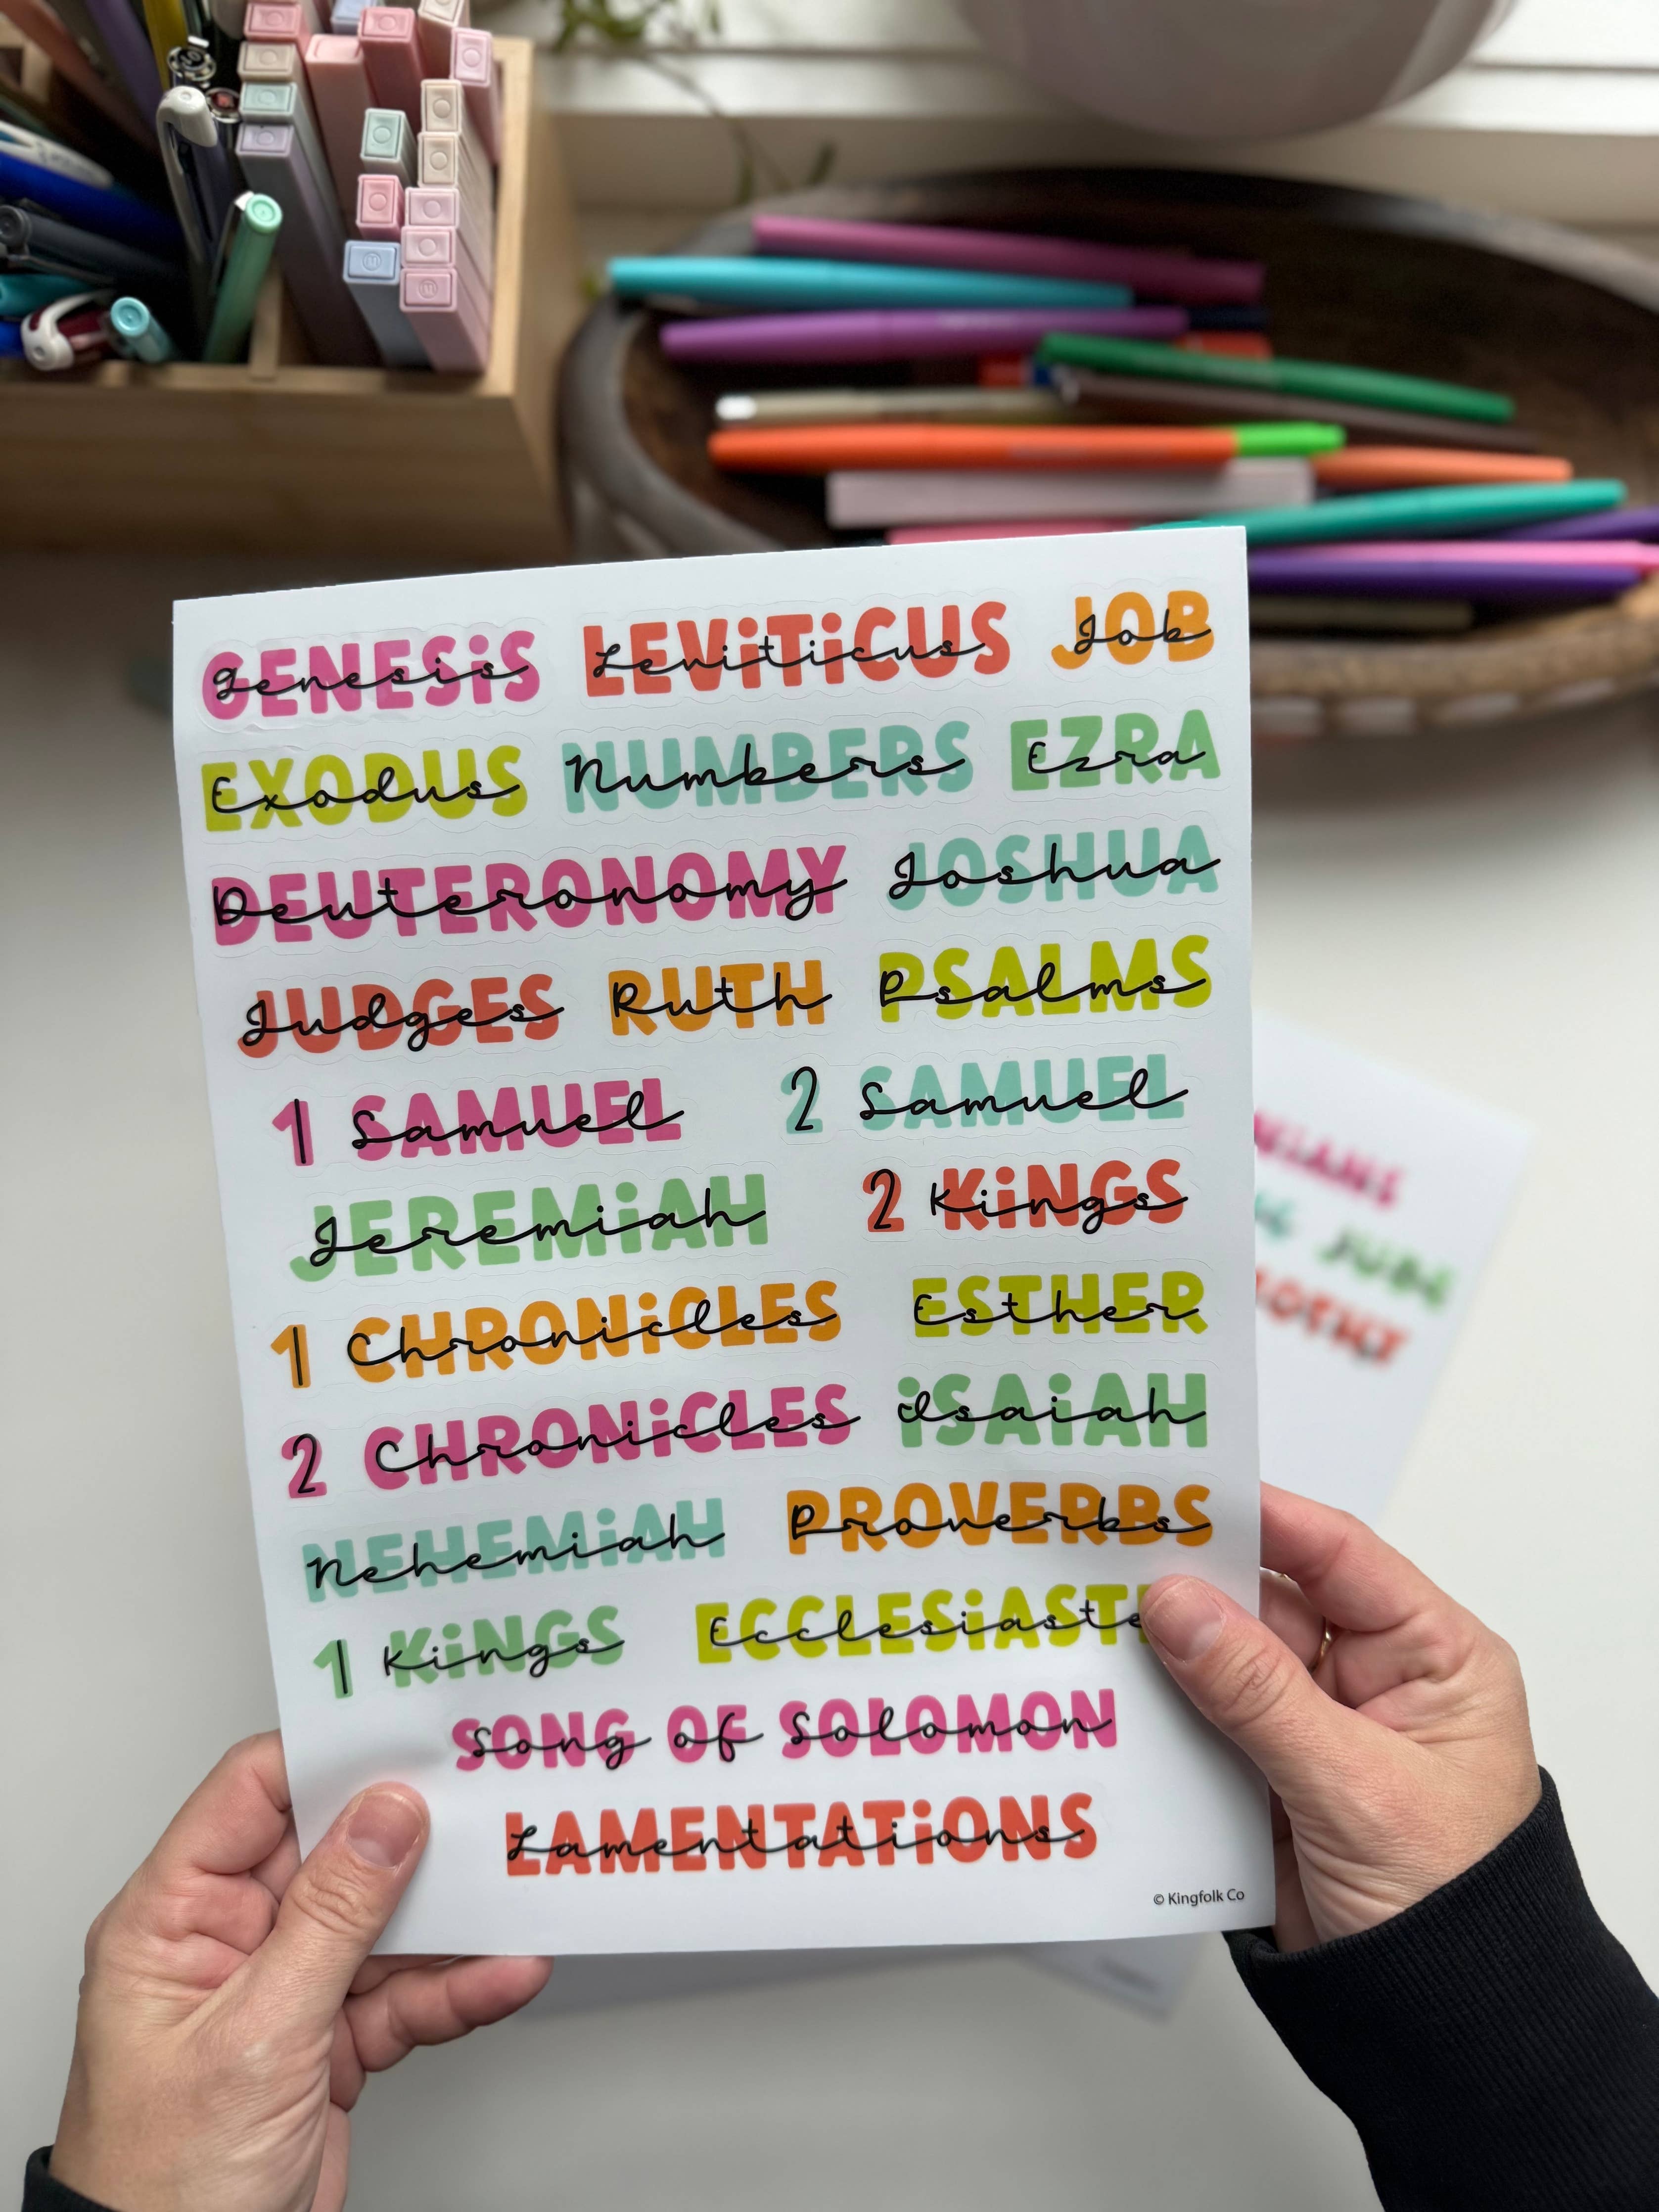 GENESiS LEViTiCUS JOB
Genesis Leviticus Job
EXODUS NUMBERS EZRA
Exodus Numbers Ezra
DEUTERONOMY JOSHUA
Deuteronomy Joshua
JUDGES RUTH PSALMS
Judges Ruth Psalms
1 SAMUEL 2 SAMUEL
1 Samuel 2 Samuel
JEREMiAH 2 KiNGS
Jeremiah 2 Kings
1 CHRONiCLES ESTHER
1 Chronicles Esther
2 CHRONiCLES iSAiAH
2 Chronicles Isaiah
NEHEMiAH PROVERBS
Nehemiah Proverbs
1 KiNGS ECCLESiAST
1 Kings Ecclesiaste
SONG OF SOLOMON
Song of Solomon
LAMENTATiONS
Lamentations
© Kingfolk Co
JUDE